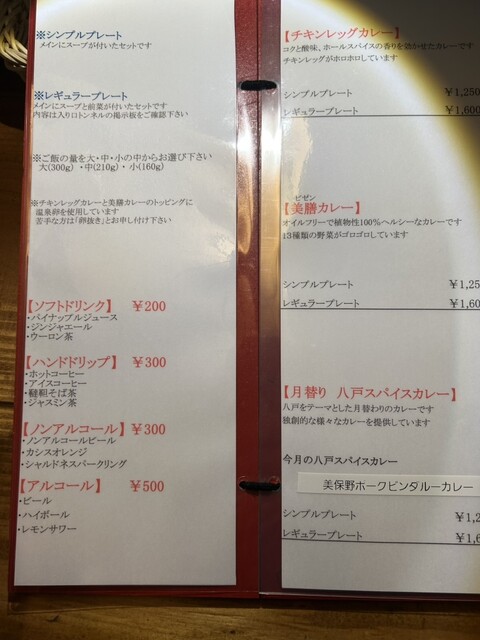 ※シンプルプレート
メインにスープが付いたセットです
※レギュラープレート
メインにスープと前菜が付いたセットです
内容は入り口トンネルの掲示板をご確認下さい
※ご飯の量を大・中・小の中からお選び下さい
大(300g) ・中(210g)・ 小(160g)
※チキンレッグカレーと美膳カレーのトッピングに
温泉卵を使用しています
苦手な方は「卵抜き」とお申し付け下さい
【ソフトドリンク】 ￥200
・パイナップルジュース
・ジンジャエール
・ウーロン茶
【ハンドドリップ】 ￥300
・ホットコーヒー
・アイスコーヒー
・韃靼そば茶
・ジャスミン茶
【ノンアルコール】 ￥300
・ノンアルコールビール
・カシスオレンジ
・シャルドネスパークリング
【アルコール】 ￥500
・ビール
・ハイボール
・レモンサワー
【チキンレッグカレー】
コクと酸味、ホールスパイスの香りを効かせたカレーです
チキンレッグがホロホロしています
シンプルプレート ￥1,250
レギュラープレート ￥1,600
ビゼン
【美膳カレー】
オイルフリーで植物性100％ヘルシーなカレーです
13種類の野菜がゴロゴロしています
シンプルプレート ￥1,25
レギュラープレート ￥1,60
【月替り 八戸スパイスカレー】
八戸をテーマとした月替わりのカレーです
独創的な様々なカレーを提供しています
今月の八戸スパイスカレー
美保野ポークビンダルーカレー
シンプルプレート ￥1,2
レギュラープレート ￥1,6